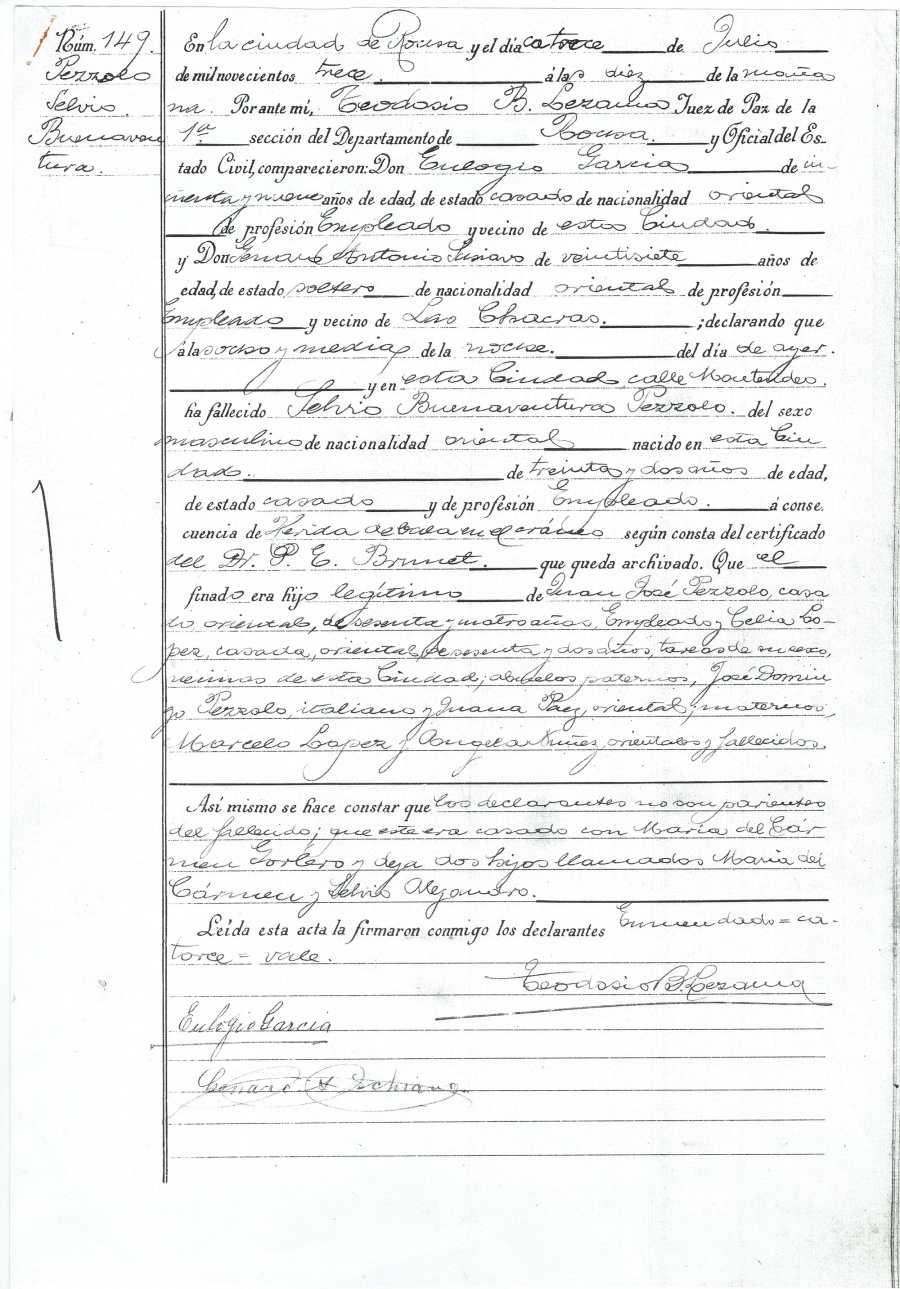 Núm. 149.
Pezzolo
Selvio
Buenaven
tura.
En la ciudad de Rocha y el día catorce de Julio
de mil novecientos trece. á las diez de la maña
na. Por ante mí, Teodosio B. Lezama Juez de Paz de la
1ª sección del Departamento de Rocha. y Oficial del Es-
tado Civil, comparecieron: Don Eulogio Garcia de cin-
cuenta y nueve años de edad, de estado casado de nacionalidad oriental
de profesión Empleado y vecino de esta Ciudad.
y Don Genaro Antonio de veintisiete años de
edad, de estado soltero de nacionalidad oriental de profesión
Empleado y vecino de Las Chacras. ; declarando que
á las ocho y media de la noche. del día de ayer.
y en esta Ciudad calle Montevideo.
ha fallecido Selvio Buenaventura Pezzolo. del sexo
masculino de nacionalidad oriental nacido en esta Ciu
dad. de treinta y dos años de edad,
de estado casado y de profesión Empleado. á conse
cuencia de Herida de bala en el cráneo según consta del certificado
del Dr. P. E. Brunet. que queda archivado. Que el
finado era hijo legítimo de Juan José Pezzolo, casa
do oriental, de sesenta y cuatro años, Empleado y Celia Lo-
pez, casada, oriental, de sesenta y dos años, tareas de su sexo,
vecinos de esta Ciudad; abuelos paternos, José Domin
go Pezzolo, italiano y Juana Paez, oriental; maternos,
Marcelo Lopez y Angela Nuñez, orientales y fallecidos.
Así mismo se hace constar que los declarantes no son parientes
del fallecido; que este era casado con María del Cár
men Gorlero y deja dos hijos llamados María del
Cármen y Selvio Alejandro.
Leída esta acta la firmaron conmigo los declarantes Enmendado = ca-
torce = vale.
Teodosio B. Lezama
Eulogio Garcia
Genaro A